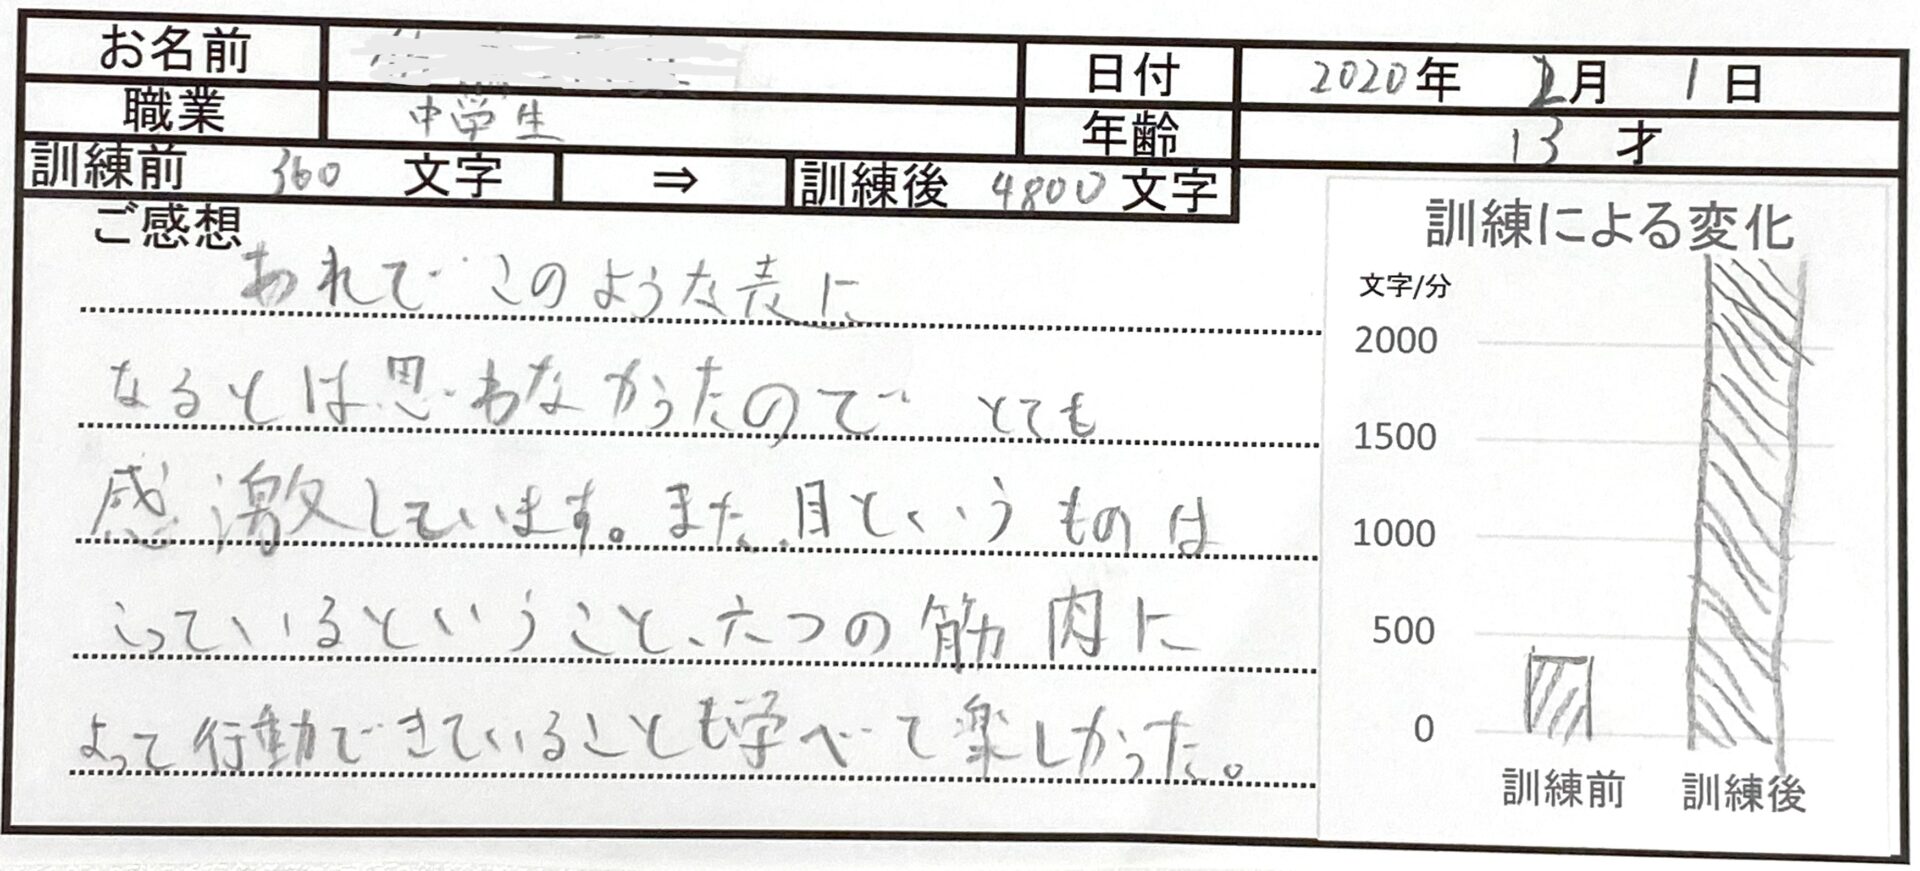 お名前
日付 2020年 2月 1日
職業 中学生
年齢 13 才
訓練前 360 文字 ⇒ 訓練後 4800 文字
ご感想
あれで このような表に
なるとは思わなかったので とても
感激しています。また、目というものは
こっているということ、六つの筋肉に
よって行動できていることも学べて楽しかった。
訓練による変化
文字/分
2000
1500
1000
500
0
訓練前 訓練後